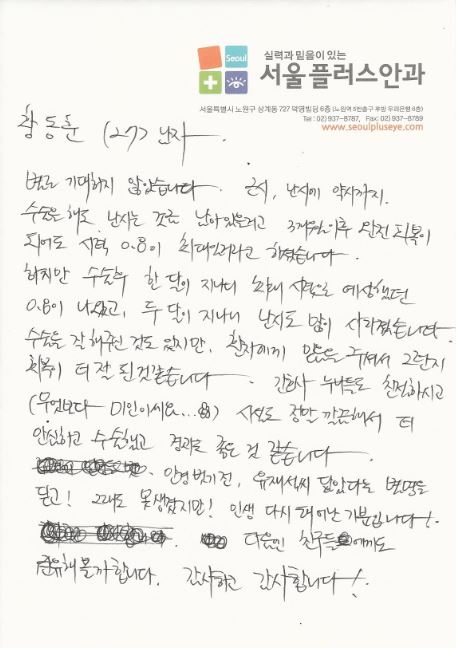 Seoul
실력과 믿음이 있는
서울플러스안과
서울특별시 노원구 상계동 727 덕영빌딩 6층 (노원역 5번출구 후방 우리은행 6층)
Tel : 02) 937-8787, Fax: 02) 937-8789
www.seoulpluseye.com
황동훈 (27) 남자
별로 기대하지 않았습니다. 근시, 난시에 약시까지.
수술은 해도 난시는 조금 남아있을거라고 3개월이후 완전 회복이
되어도 시력 0.8이 최대일거라고 하셨습니다.
하지만 수술후 한 달이 지나니 최대 시력으로 예상했던
0.8이 나왔고, 두 달이 지나니 난시도 많이 사라졌습니다.
수술을 잘 해주신 것도 있지만, 환자에게 믿음을 주셔서 그런지
회복이 더 잘 된것 같습니다. 간호사 누나들도 친절하시고
(무엇보다 미인이세요...) 시설도 정말 깔끔해서 더
안심하고 수술했고 결과도 좋은 것 같습니다.
안경벗기전, 유재석씨 닮았다는 별명을
듣고! 그래도 못생겼지만! 인생 다시 태어난 기분입니다!
다음엔 친구들에게도
권유해볼까 합니다. 감사하고 감사합니다!